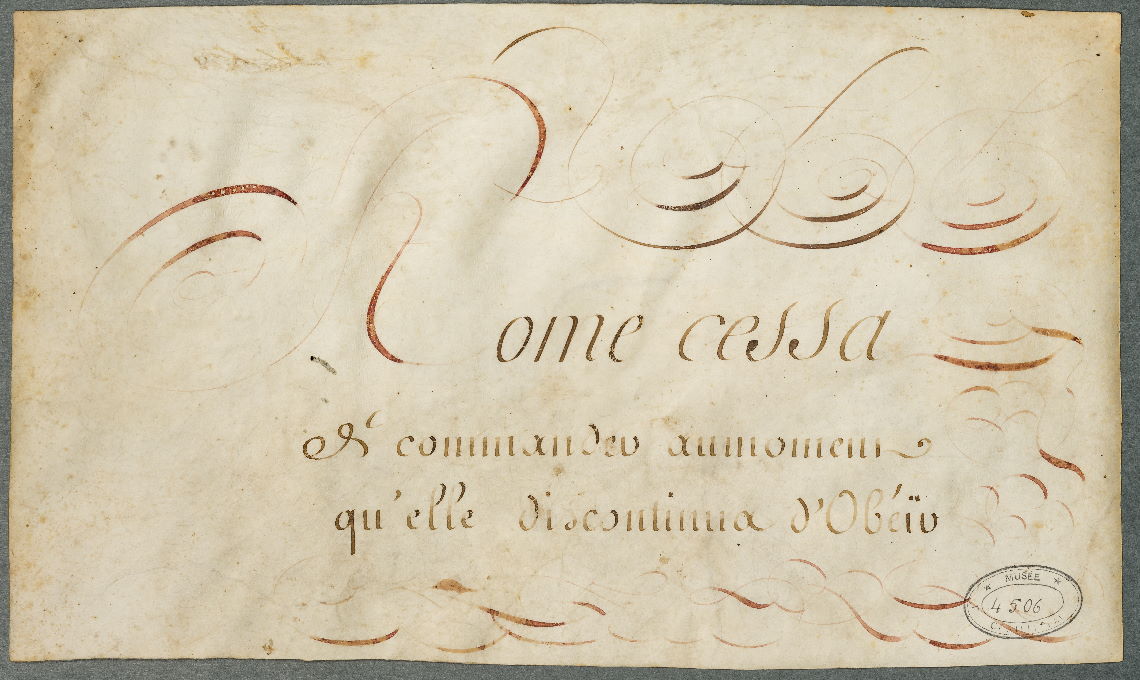 Rome cessa
de commander au moment
qu'elle discontinua d'Obéïr
MUSÉE
4506